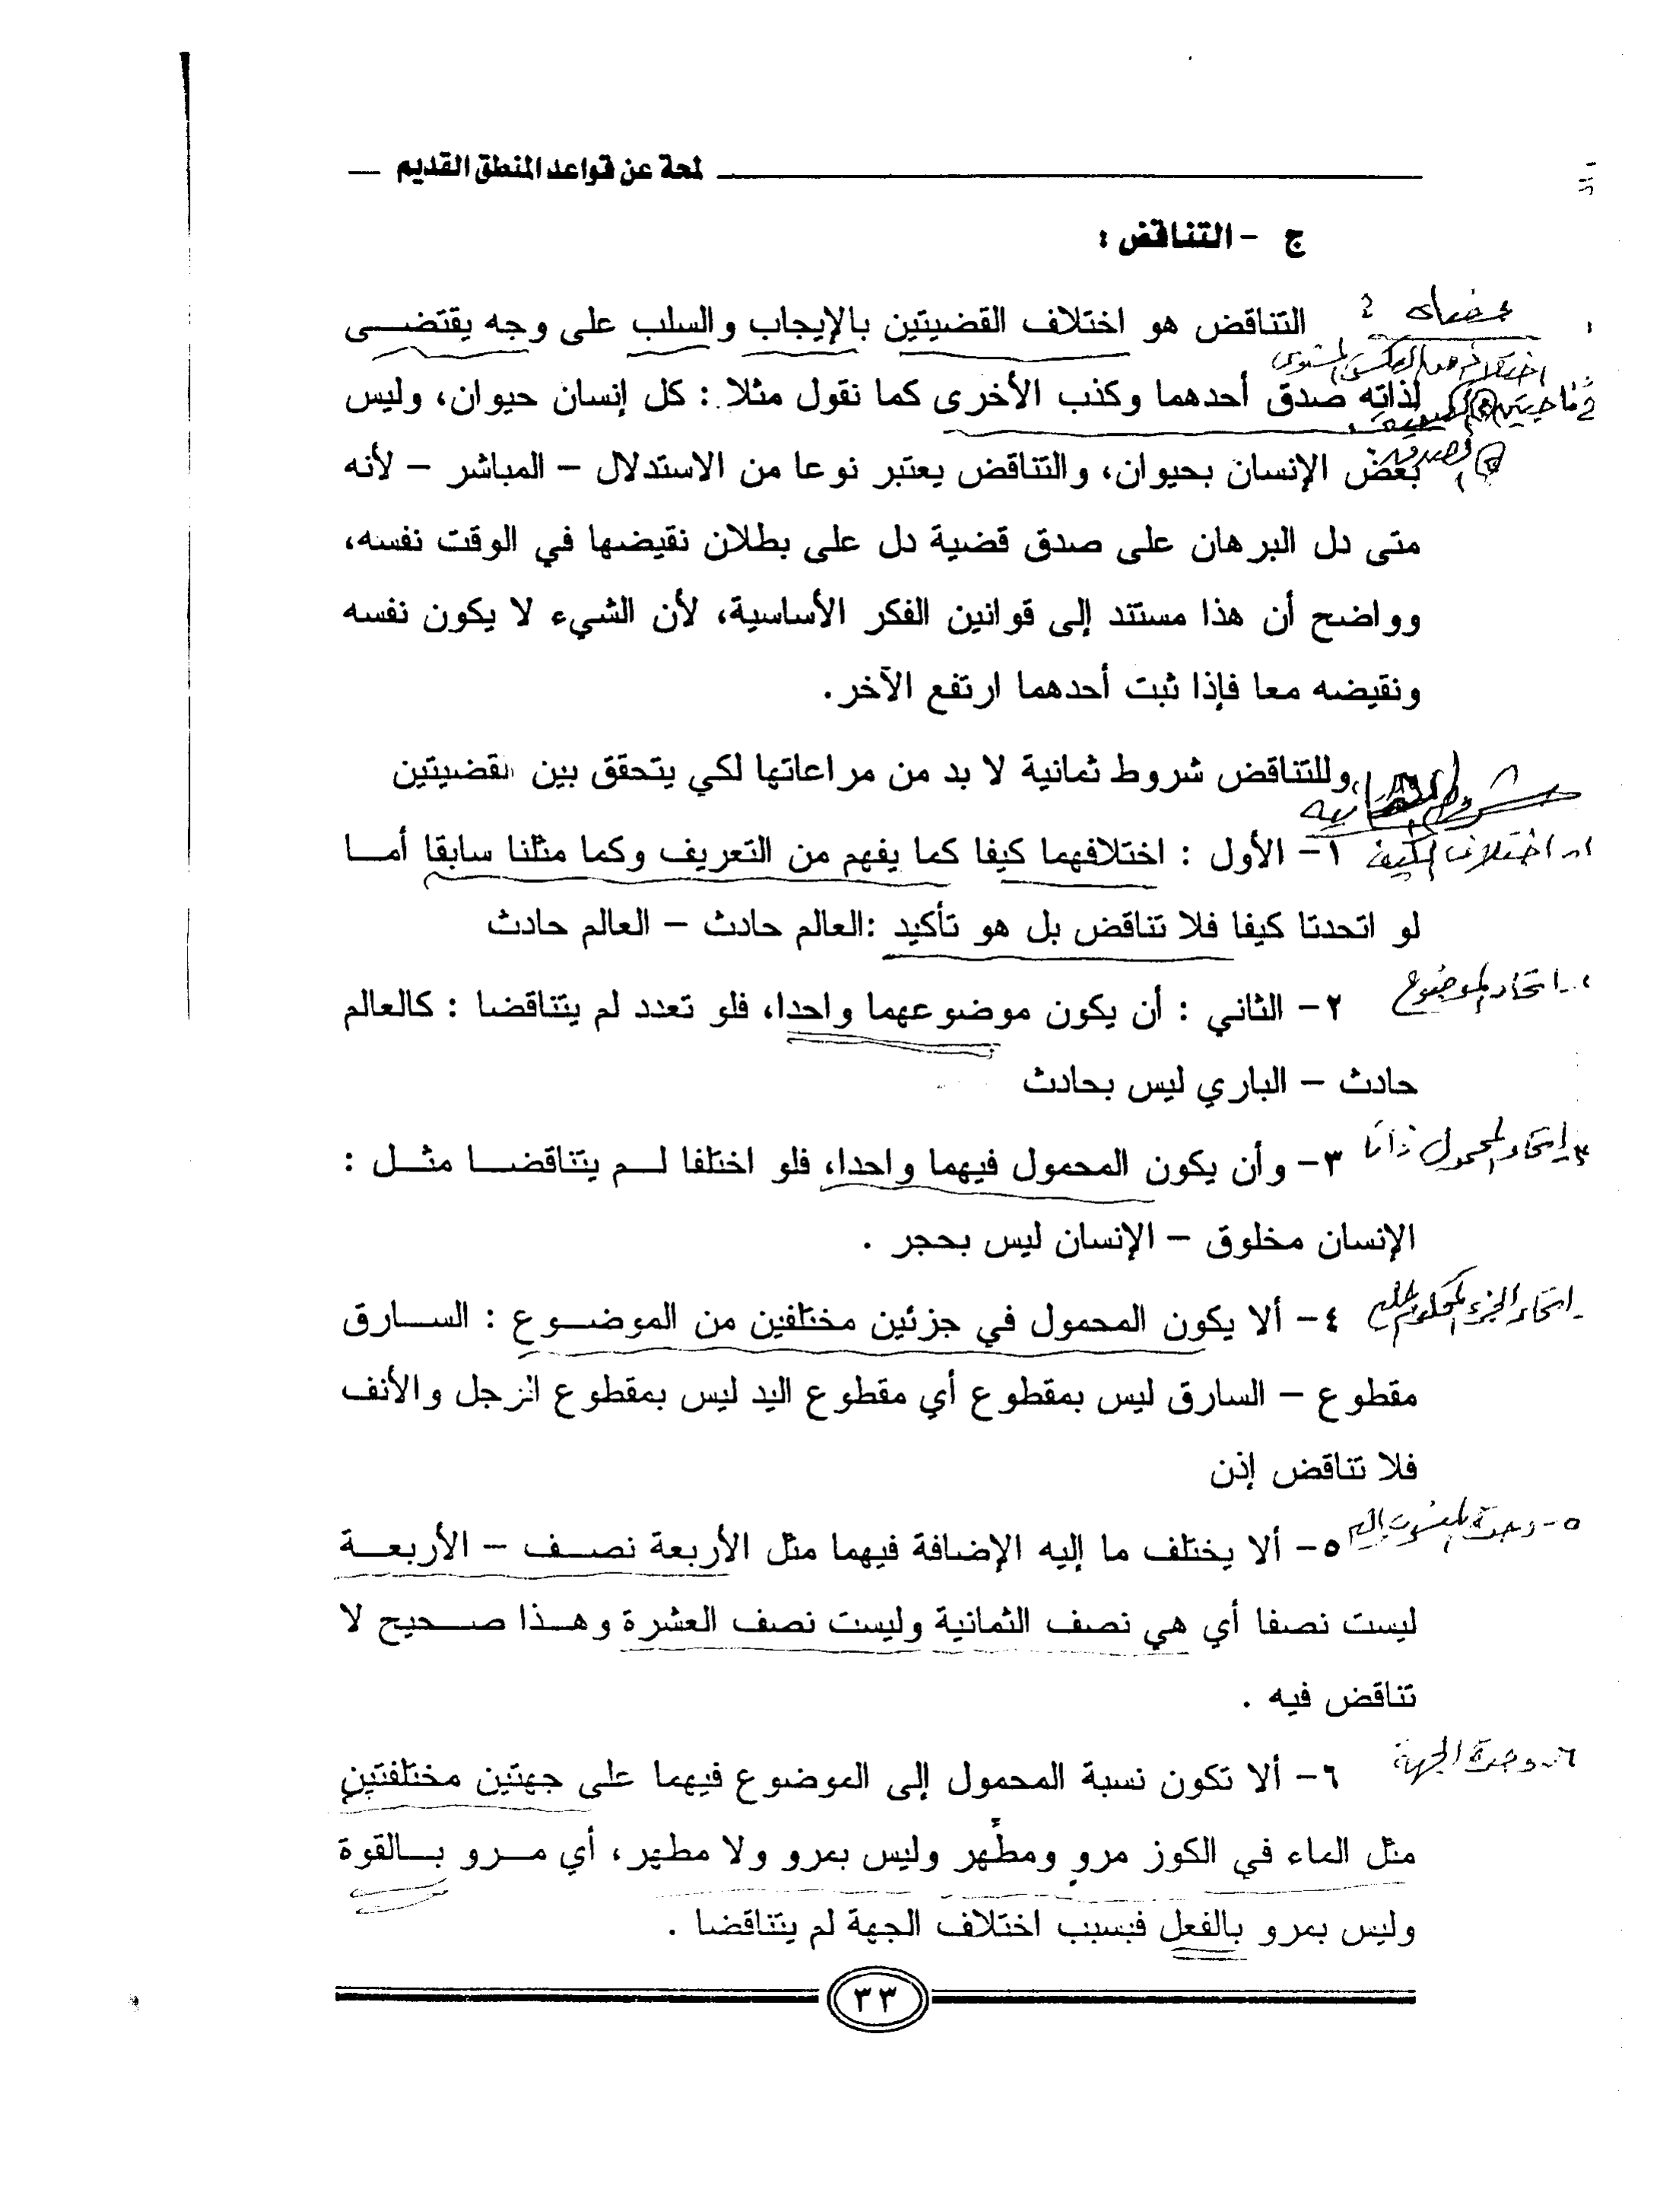 لمحة عن قواعد المنطق القديم
ج - التناقض :
التناقض هو اختلاف القضيتين بالإيجاب والسلب على وجه يقتضى
لذاته صدق أحدهما وكذب الأخرى كما نقول مثلا : كل إنسان حيوان، وليس
بعض الإنسان بحيوان، والتناقض يعتبر نوعا من الاستدلال - المباشر - لأنه
متى دل البرهان على صدق قضية دل على بطلان نقيضها في الوقت نفسه،
وواضح أن هذا مستند إلى قوانين الفكر الأساسية، لأن الشيء لا يكون نفسه
ونقيضه معا فإذا ثبت أحدهما ارتفع الآخر.
وللتناقض شروط ثمانية لا بد من مراعاتها لكي يتحقق بين القضيتين
اختلاف الكيف
١- الأول : اختلافهما كيفا كما يفهم من التعريف وكما مثلنا سابقا أما
لو اتحدتا كيفا فلا تناقض بل هو تأكيد :العالم حادث - العالم حادث
اتحاد الموضوع
٢- الثاني : أن يكون موضوعهما واحدا، فلو تعدد لم يتناقضا : كالعالم
حادث - الباري ليس بحادث
اتحاد المحمول ذاتا
٣- وأن يكون المحمول فيهما واحدا، فلو اختلفا لم يتناقضا مثل :
الإنسان مخلوق - الإنسان ليس بحجر .
اتحاد الجزء المحكوم عليه
٤- ألا يكون المحمول في جزئين مختلفين من الموضوع : السارق
مقطوع - السارق ليس بمقطوع أي مقطوع اليد ليس بمقطوع الرجل والأنف
فلا تناقض إذن
٥- وحدة المنسوب إليه
٥- ألا يختلف ما إليه الإضافة فيهما مثل الأربعة نصف - الأربعة
ليست نصفا أي هي نصف الثمانية وليست نصف العشرة وهذا صحيح لا
تناقض فيه .
٦- وحدة الجهة
٦- ألا تكون نسبة المحمول إلى الموضوع فيهما على جهتين مختلفتين
مثل الماء في الكوز مرو ومطهر وليس بمرو ولا مطهر، أي مرو بالقوة
وليس بمرو بالفعل فبسبب اختلاف الجهة لم يتناقضا .
٣٣